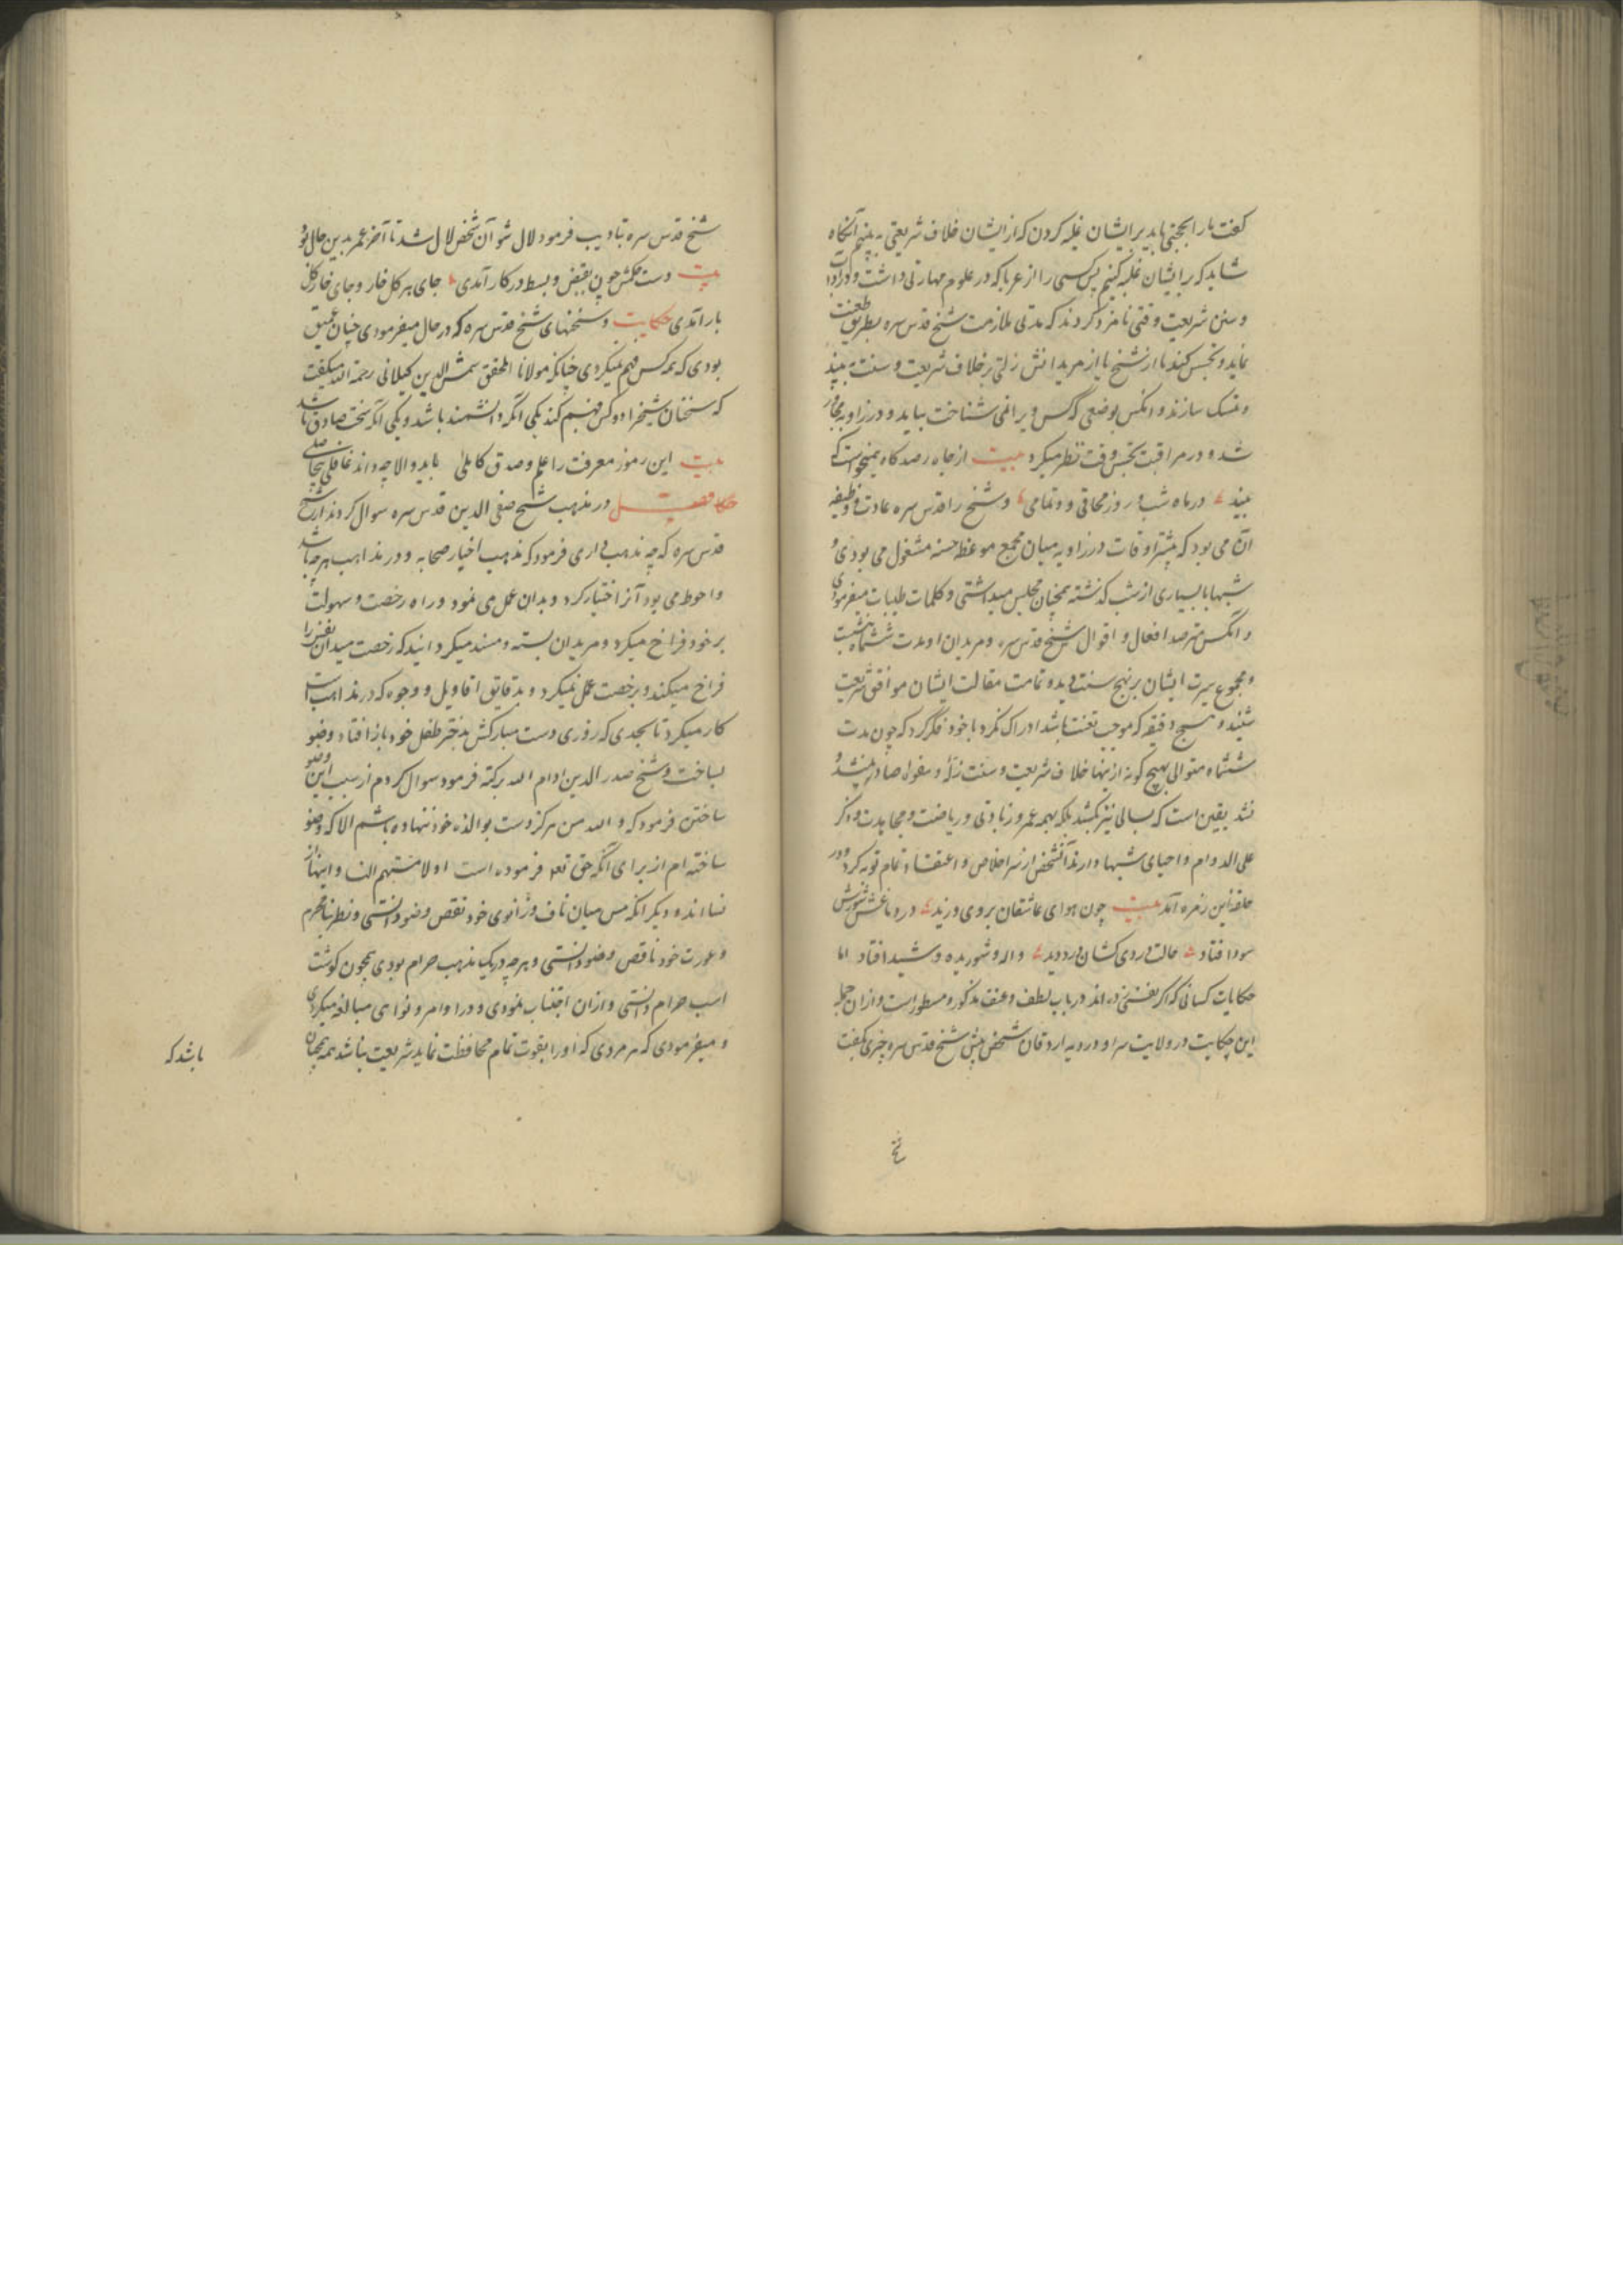 گفت ما را حجتی باید بر ایشان غلبه کردن که از ایشان خلاف شریعتی به بینیم آنگاه
شاید که بر ایشان غلبه کنیم پس کسی را از عرباکه در علوم مهارتی داشت و در آداب
و سنن شریعت وقتی نامزد کردند که مدتی ملازمت شیخ قدس سره بطریق تعنت
نماید و تجسس کند تا از شیخ یا از مریدانش زلتی بر خلاف شریعت و سنت به بیند
و تمسک سازند و انکس بوضعی که کس ویرا نمی شناخت بیاید و در زاویه مجاور
شد و در مراقبت تجسس وقت نظر میکرد بیت از چاه رصد کاه همیخواست که
بیند در ماه شب و روز محاقی و تمامی و شیخ را قدس سره عادت و وظیفه
آن می بود که بیشتر اوقات در زاویه میان مجمع موعظ حسنه مشغول می بودی و
شبها با بسیاری از شب گذشته همچنان مجلس میداشتی و کلمات طیبات میفرمودی
و انکس مترصد افعال و اقوال شیخ قدس سره و مریدان او مدت ششماه بنشست
و مجموع سیرت ایشان بر نهج سنت دید و تمامت مقالت ایشان موافق شریعت
شنید و هیچ دقیقه که موجب تعنت باشد ادراک نکرد با خود فکر کرد که چون مدت
ششماه متوالی بهیچ گونه ازینها خلاف شریعت و سنت زله و مقوله صادر نشد و
نشد یقین است که بسالی نیز نکشد بلکه بهمه عمر و زیادتی و ریاضت و مجاهدت و ذکر
علی الدوام و احیای شبها دارند آنشخص از سر اخلاص و اعتقاد تمام توبه کرد و در
حلقه این زمره آمد بیت چون هوای عاشقان بر وی وزید در دماغش شورش
سودا فتاد حالت دردی کشان در وی دید واله و شوریده و شیدا فتاد اما
حکایات کسانی که اگر بعنف در باب لطف و عنف مذکور و مسطور است و از ان جمله
این حکایت در ولایت سراو در دیه اردقان شخصی پیش شیخ قدس سره چیزی بگفت
شیخ
شیخ قدس سره بتادیب فرمود لال شو آن شخص لال شد تا آخر عمر بدین حال بود
بیت دست حکمش چون بقبض و بسط در کار آمدی جای هر گل خار و جای خار گل
بار آمدی حکایت و سخنهای شیخ قدس سره که در حال میفرمودی چنان عمیق
بودی که همه کس فهم نمیکردی چنانکه مولانا المحقق شمس الدین گیلانی رحمة الله میگفت
که سخنان شیخ را دو کس فهم کند یکی آنکه دانشمند باشد و یکی آنکه سخت صادق باشد
بیت این رموز معرفت را علم و صدق کاملی باید و الا چه داند غافلی بیحاصلی
حکا فصل در مذهب شیخ صفی الدین قدس سره سوال کردند از شیخ
قدس سره که چه مذهب داری فرمود که مذهب اخیار صحابه و در مذاهب هرچه باشد
و احوط می بود آنرا اختیار کرد و بدان عمل می نمود و راه رخصت و سهولت
بر خود فراخ میکرد و مریدان بسته و مسند میگردانید که رخصت میدان نفس را
فراخ میکند و برخصت عمل نمیکرد و بدقایق اقاویل و وجوه که در مذاهب است
کار میکرد تا بحدی که روزی دست مبارکش بدختر طفل خود باز افتاد وضو
بساخت و شیخ صدر الدین ادام الله برکته فرمود سوال کردم از سبب این وضو
ساختن فرمود که والله من هرگز دست بوالده خود ننهاده باشم الا که وضو
ساخته ام از برای آنکه حق تعه فرموده است او لامستم النسا و اینها از
نسا اند و دیگر انکه مس میان ناف و زانوی خود نقص وضو دانستی و نظر بنامحرم
و عورت خود ناقص وضو دانستی و هرچه در یک مذهب حرام بودی همچون گوشت
اسب حرام دانستی و از ان اجتناب نمودی و در اوامر و نواهی مبالغه میکردی
و میفرمودی که هر مردی که اورا بقوت تمام محافظت نماید شریعت نباشد همچنان
باشد که